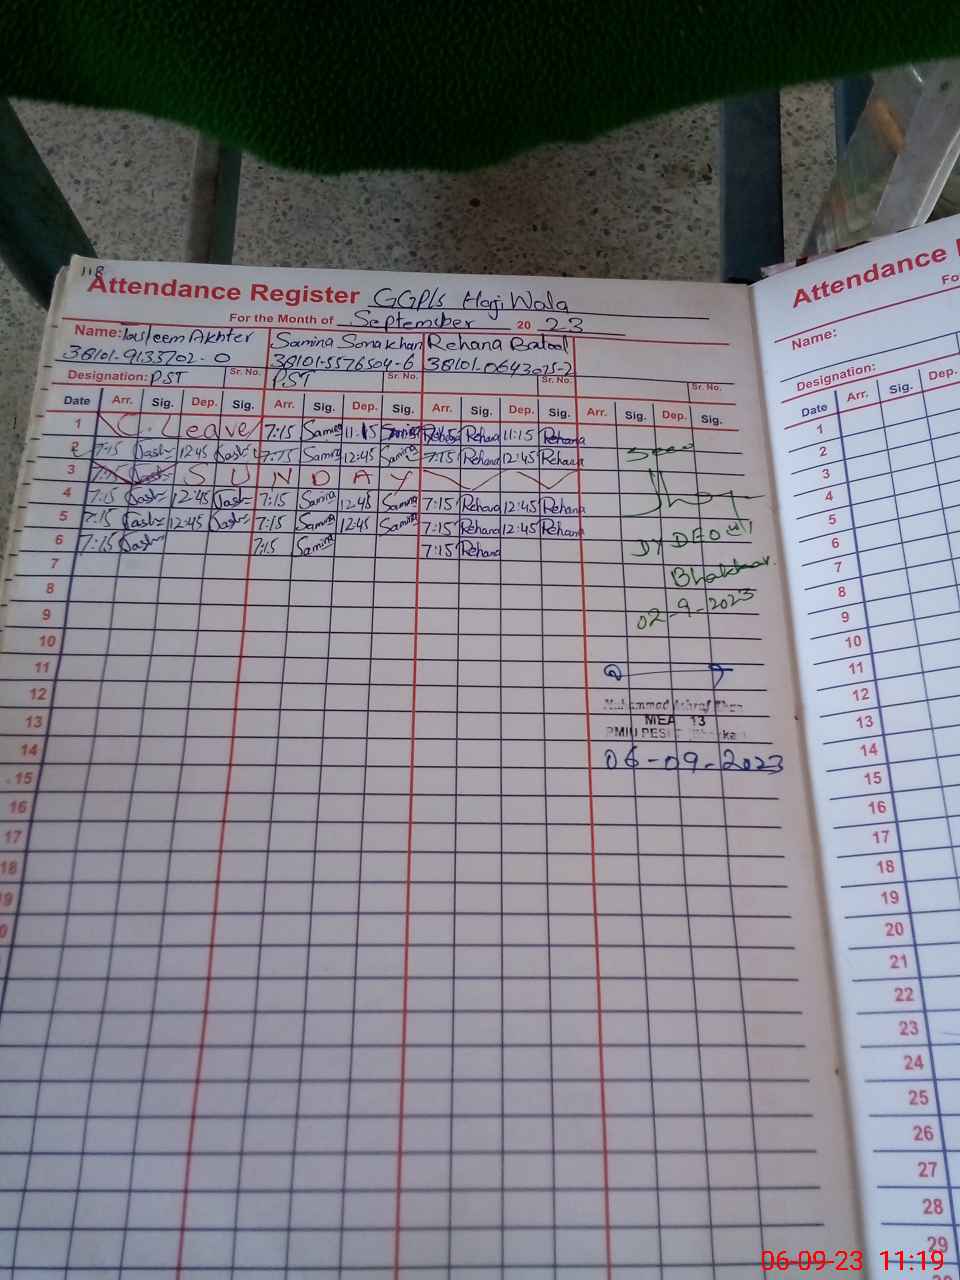 118
Attendance Register GGPS Haji Wala
For the Month of September 20 23
Name: Tasleem Akhter Samina Sona Khan Rehana Batool
38101-9133702-0 38101-5576504-6 38101-0643075-2
Designation: PST Sr. No. PST Sr. No. Sr. No. Sr. No.
Date Arr. Sig. Dep. Sig. Arr. Sig. Dep. Sig. Arr. Sig. Dep. Sig. Arr. Sig. Dep. Sig.
1 C. Leave 7:15 Samina 11:15 Samina Rehana 11:15 Rehana
2 7:15 Tasl 12:45 Tasl 7:15 Samina 12:45 Samina 7:15 Rehana 12:45 Rehana
3 7:15 SUNDAY
4 7:15 Tasl 12:45 Tasl 7:15 Samina 12:45 Samina 7:15 Rehana 12:45 Rehana
5 7:15 Tasl 12:45 Tasl 7:15 Samina 12:45 Samina 7:15 Rehana 12:45 Rehana
6 7:15 Tasl 7:15 Samina 7:15 Rehana
7
8
9
10
11
12
13
14
15
16
17
18
Seen
DY DEO
Bhakkar.
02-9-2023
Muhammad Ashraf Khan
MEA 13
PMIU PESRP Bhakkar
06-09-2023
Attendance
Name:
Designation:
Date Arr. Sig. Dep.
1
2
3
4
5
6
7
8
9
10
11
12
13
14
15
16
17
18
19
20
21
22
23
24
25
26
27
28
29
06-09-23 11:19